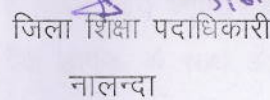 जिला शिक्षा पदाधिकारी
नालन्दा